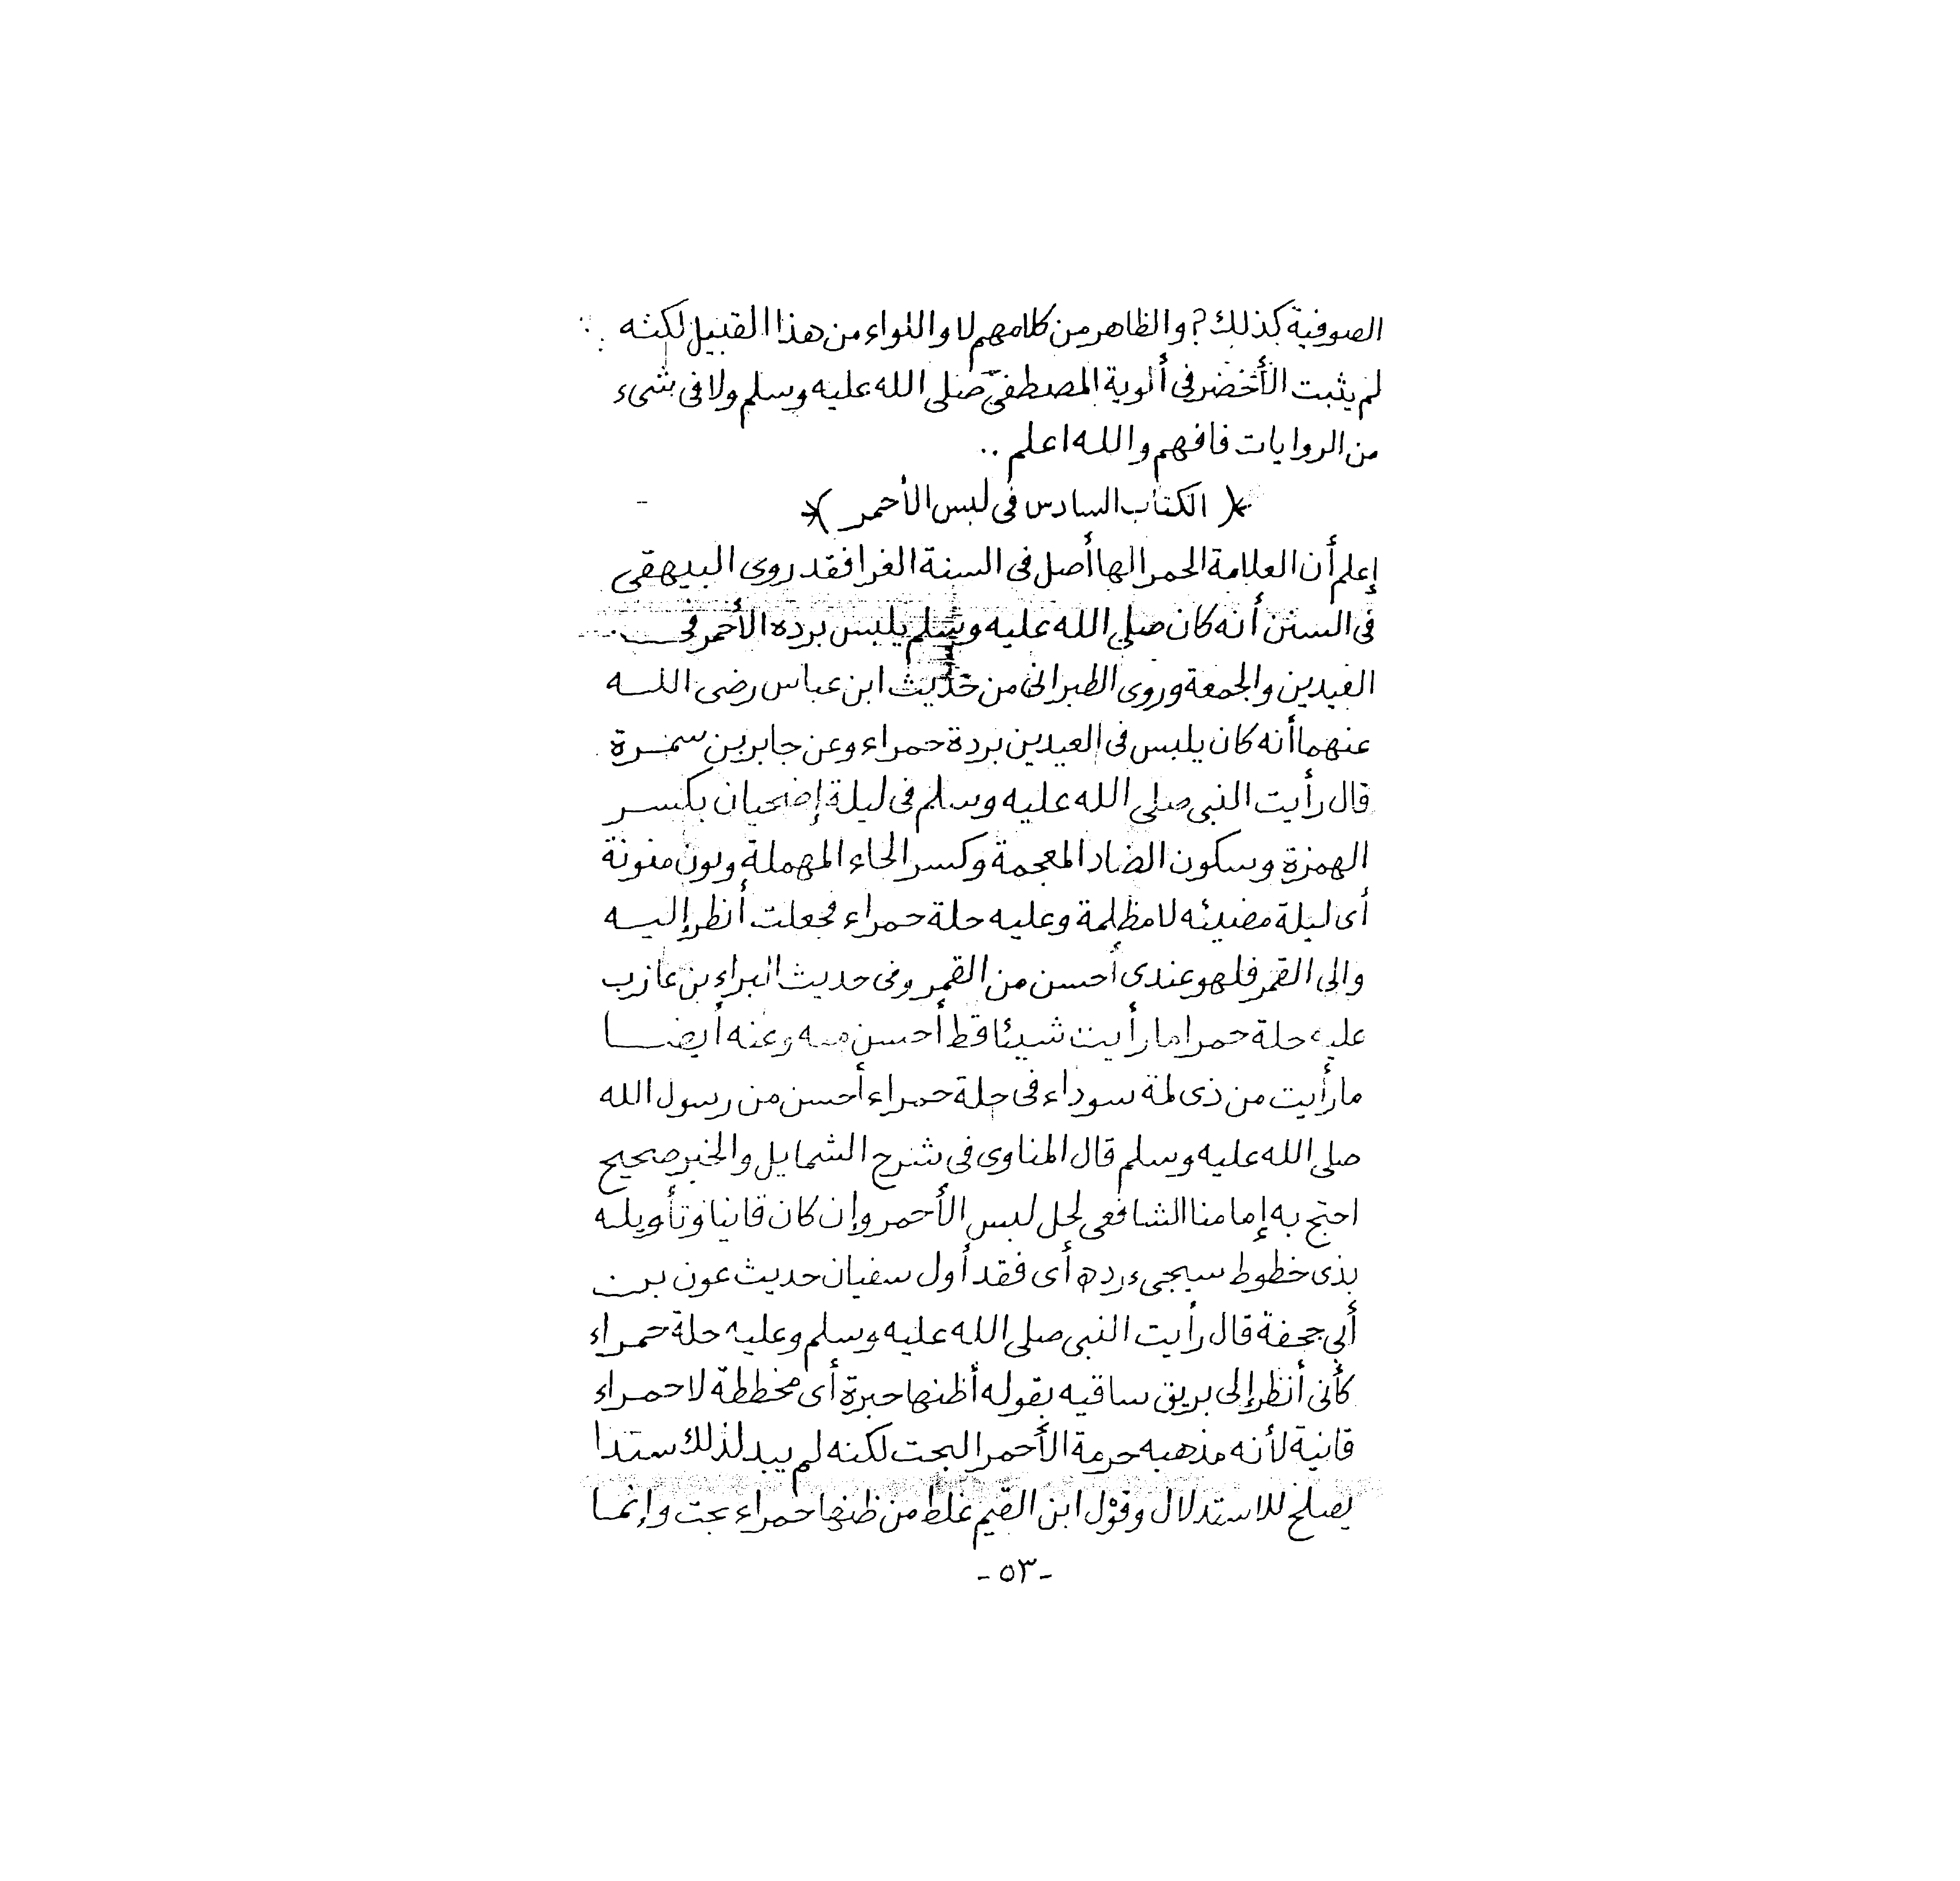 الصوفية كذلك؟ والظاهر من كلامهم لا واللواء من هذا القبيل لكنه
لم يثبت الأخضر في ألوية المصطفى صلى الله عليه وسلم ولا في شىء
من الروايات فافهم والله اعلم ..
*( الكتاب السادس في لبس الأحمر )*
إعلم أن العلامة الحمرالها أصل في السنة الغرا فقد روى البيهقى
في السنن أنه كان صلى الله عليه وسلم يلبس برده الأحمر في
العيدين والجمعة وروى الطبرانى من حديث ابن عباس رضى الله
عنهما أنه كان يلبس في العيدين بردة حمراء وعن جابر بن سمرة
قال رأيت النبى صلى الله عليه وسلم في ليلة إضحيان بكسر
الهمزة وسكون الضاد المعجمة وكسر الحاء المهملة ونون منونة
أى ليلة مضيئه لا مظلمة وعليه حلة حمراء فجعلت أنظر إليه
والى القمر فلهو عندى أحسن من القمر وفى حديث البراء بن عازب
عليه حلة حمرا ما رأيت شيئا قط أحسن منه وعنه أيضا
ما رأيت من ذى لمة سوداء في حلة حمراء أحسن من رسول الله
صلى الله عليه وسلم قال المناوى في شرح الشمايل والخبر صحيح
احتج به إمامنا الشافعى لحل لبس الأحمر وإن كان قانيا وتأويله
بذى خطوط سيجىء رده أى فقد أول سفيان حديث عون بن
أبى جحفة قال رأيت النبى صلى الله عليه وسلم وعليه حلة حمراء
كأنى أنظر إلى بريق ساقيه بقوله أظنها حبرة أى مخططة لا حمراء
قانية لأنه مذهبه حرمة الأحمر البحت لكنه لم يبد لذلك سندا
يصلح للاستدلال وقول ابن القيم غلط من ظنها حمراء بحت وإنما
- ٥٣ -